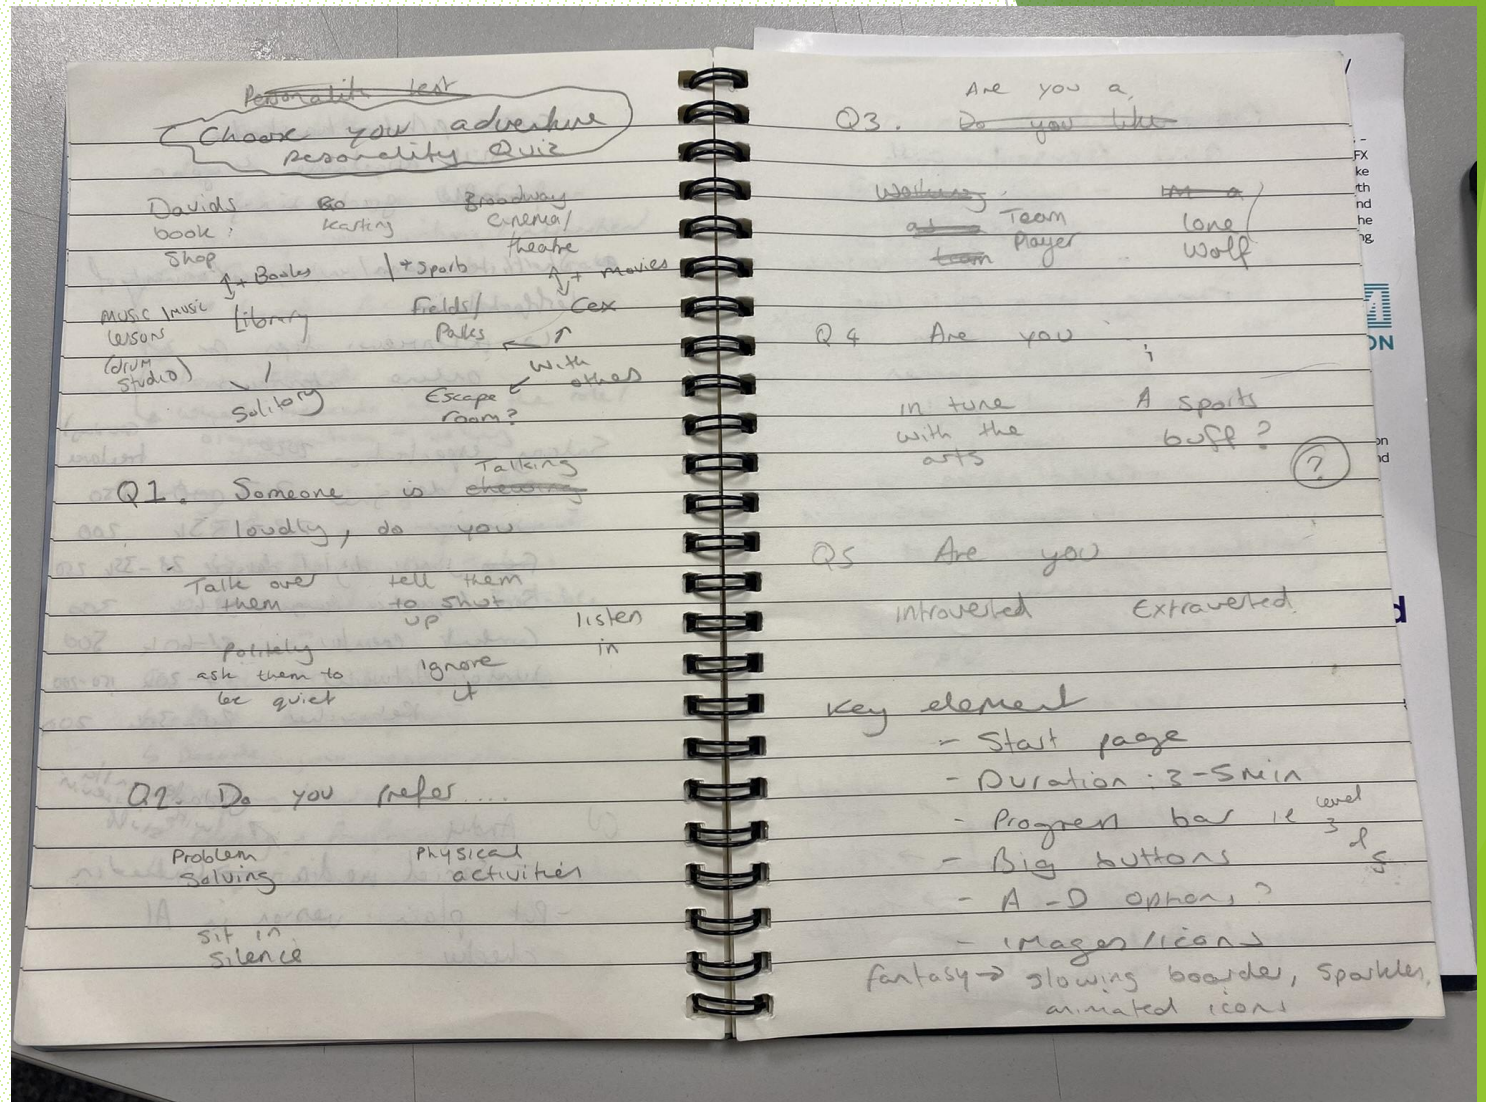 Personality test
Choose your adventure
personality Quiz
Davids
book
Shop
Go
karting
Broadway
cinema/
theatre
+ Books
+ sports
+ movies
Music/music
lesson
(drum
studio)
Library
Fields/
Parks
Cex
with
others
Solitary
Escape
room?
Talking
Q1. Someone is chewing
loudly, do you
Talk over
them
tell them
to shut
up
listen
in
Politely
ask them to
be quiet
ignore
it
Q2. Do you prefer....
Problem
Solving
Physical
activities
Sit in
Silence
Are you a
Q3. Do you like
Working
as
team
Team
Player
I'm a
lone
wolf
Q4 Are you
in tune
with the
arts
A sports
buff?
?
Q5 Are you
introverted
Extraverted
Key element
- Start page
- Duration: 3-5min
- Progress bar ie level
3 of
5
- Big buttons
- A-D options?
- images/icons
fantasy → glowing boarder, sparkles,
animated icons
FX
ke
th
nd
he
ng
ON
on
nd